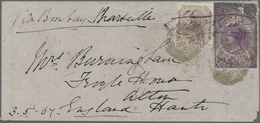 Via Bombay Marseille
Mrs Burningham
Froyle House
Alton
3.5.67. England. Hants